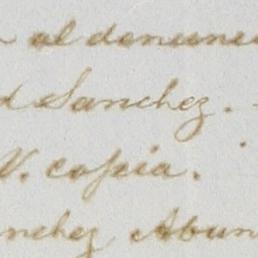 al denunci
d Sanchez.
V. copia.
nchez Abun